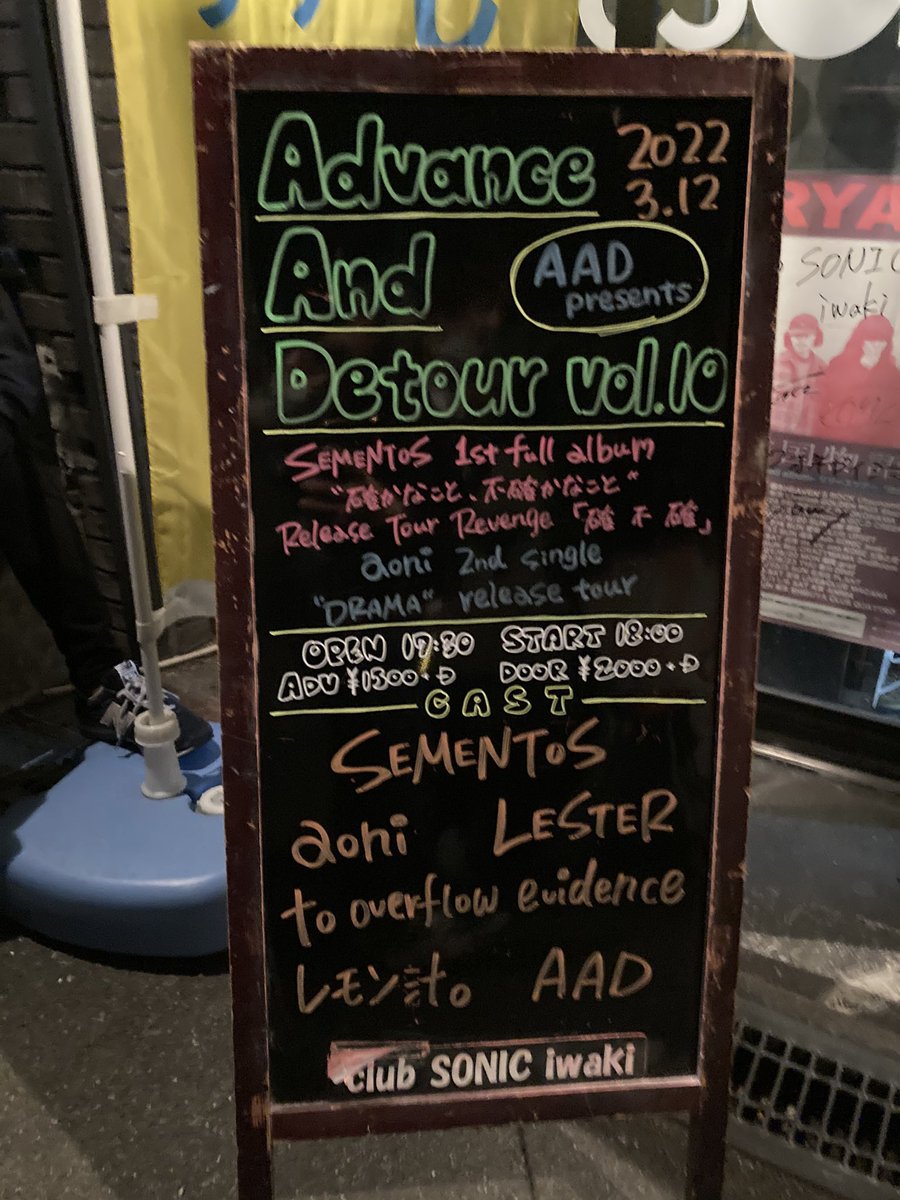 Advance
2022
3.12
And
AAD
presents
Detour vol.10
SEMENTOS 1st full album
"確かなこと、不確かなこと"
Release Tour Revenge「確 不 確」
aoni 2nd single
"DRAMA" release tour
OPEN 17:30 START 18:00
ADV ¥1500+D DOOR ¥2000+D
CAST
SEMENTOS
aoni LESTER
to overflow evidence
レモン計。 AAD
club SONIC iwaki
RYA
SONIC
iwaki